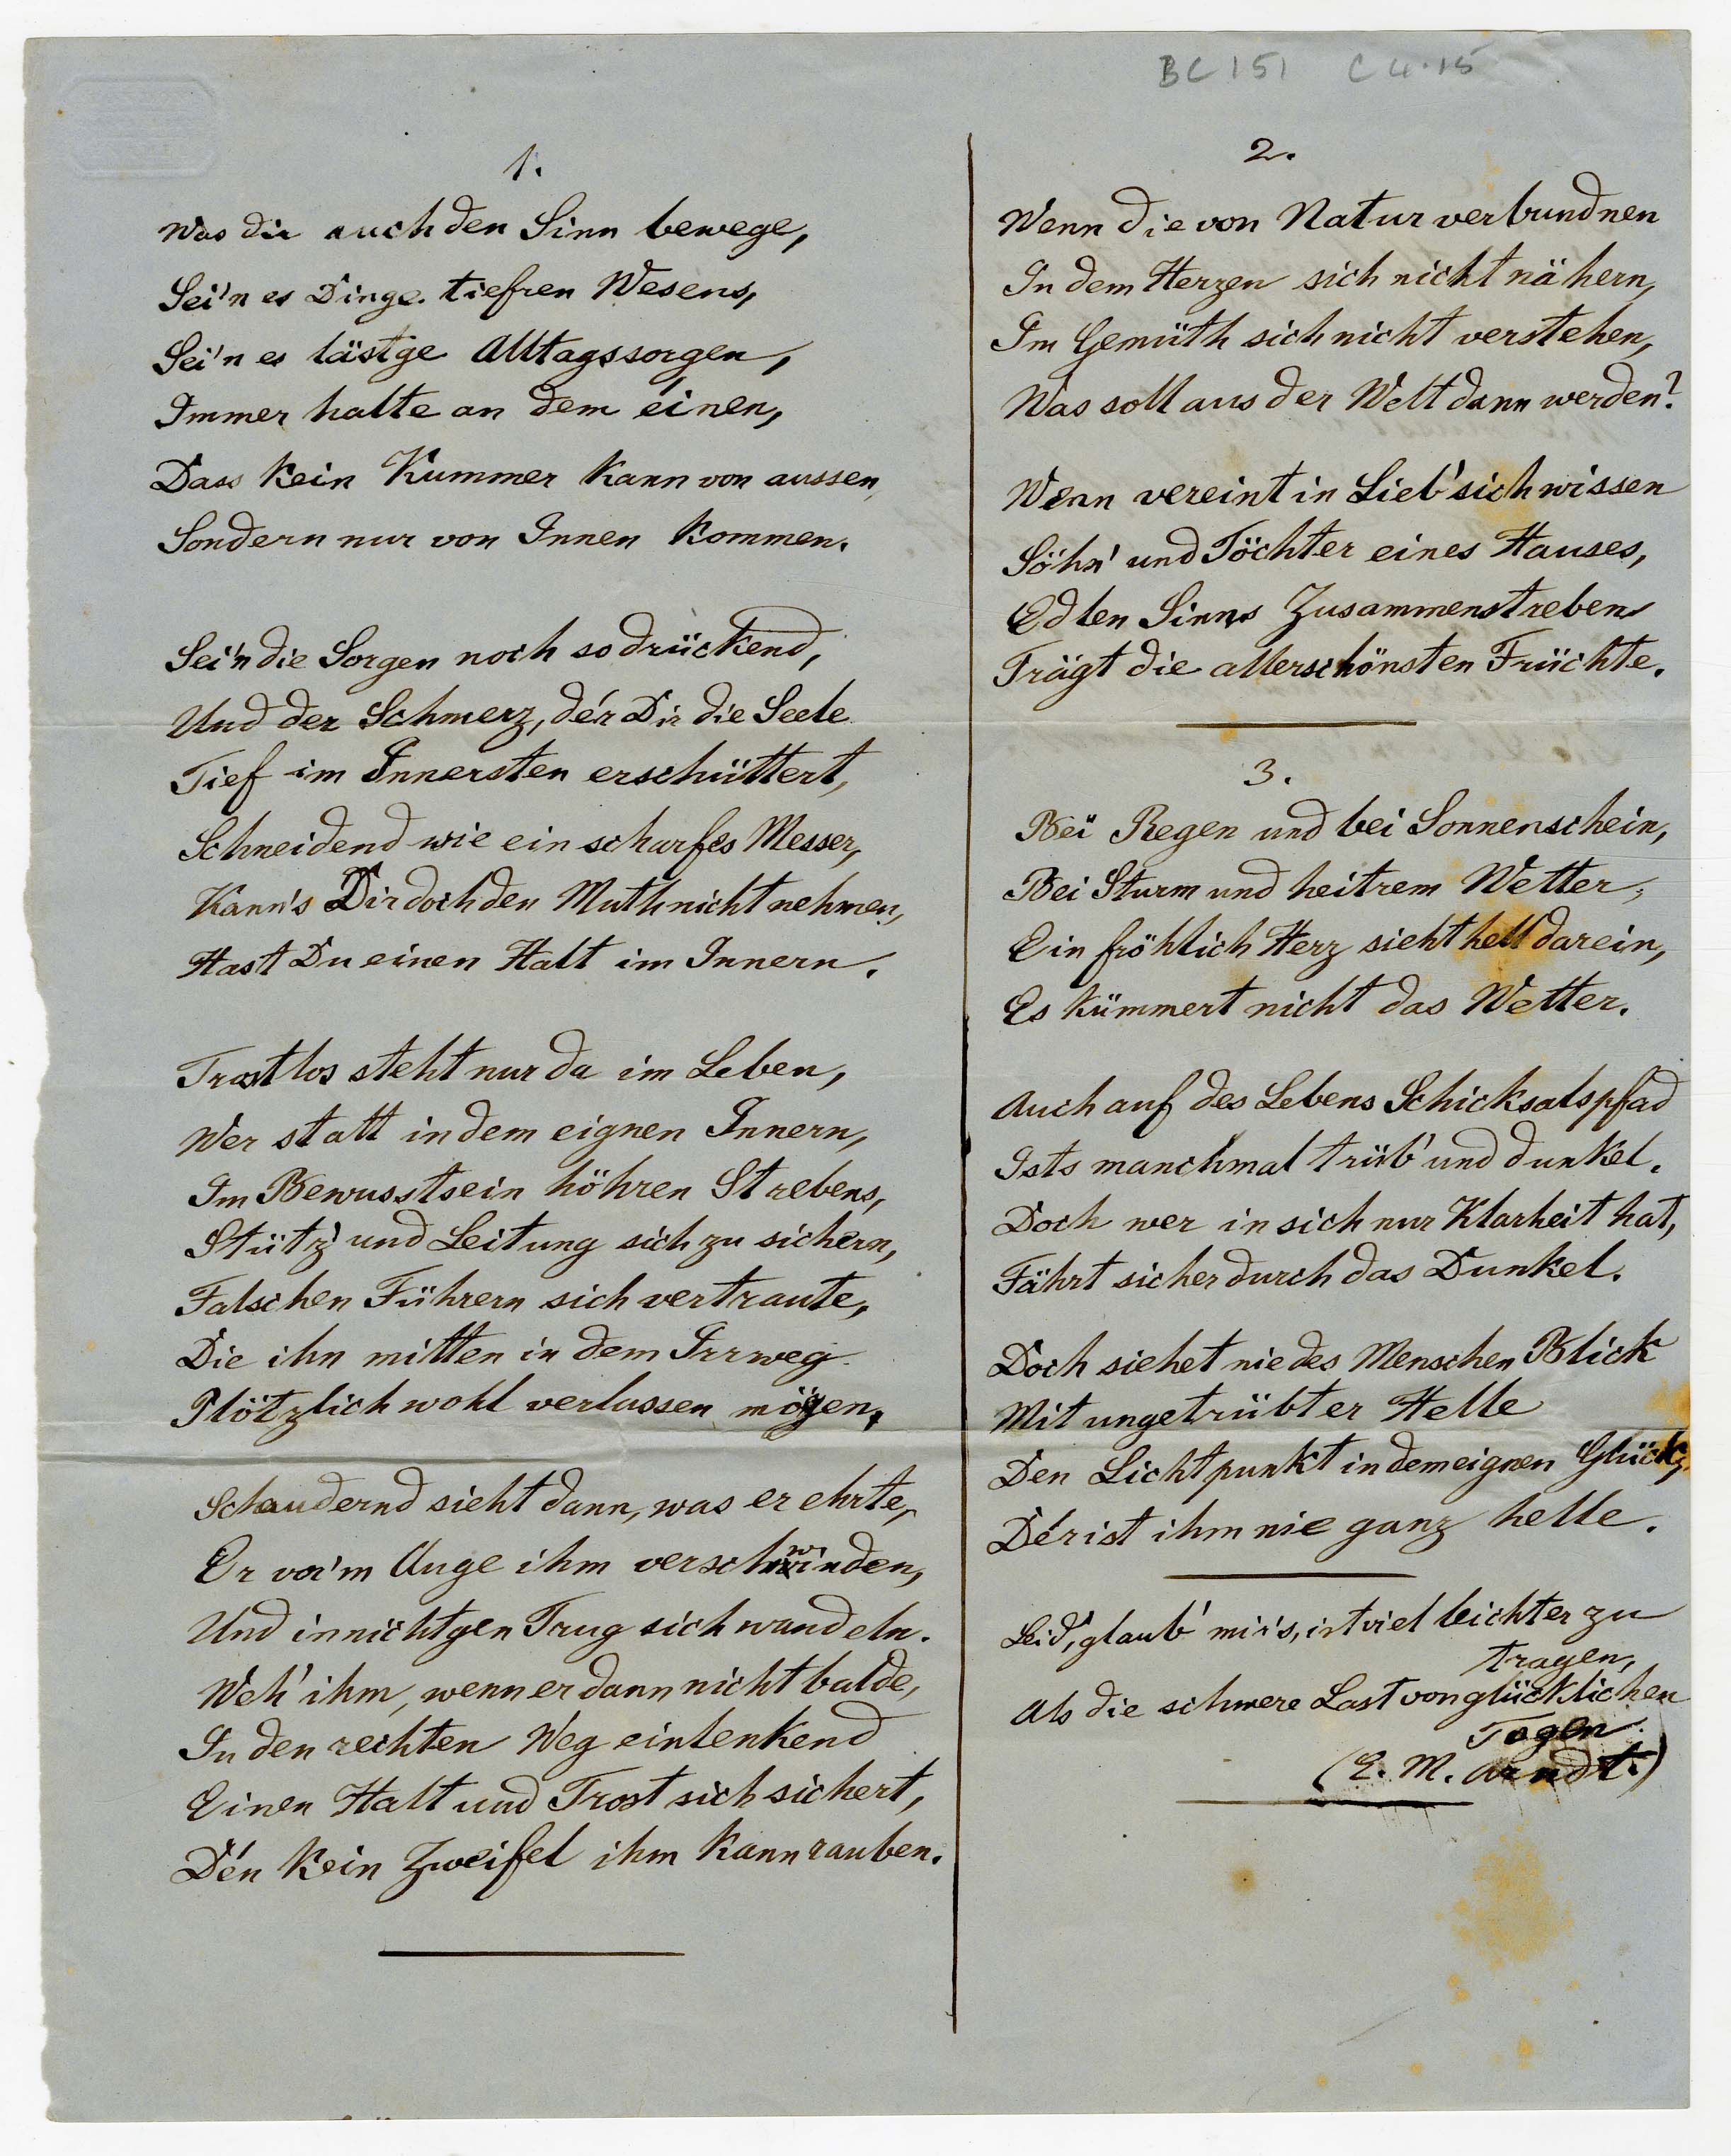 BC 151 C 4.15
1.
Was dir auch den Sinn bewege,
Sei'n es Dinge tiefren Wesens,
Sei'n es läst'ge Alltagssorgen,
Immer halte an dem einen,
Dass kein Kummer kann von aussen,
Sondern nur von Innen kommen.
Sei'n die Sorgen noch so drückend,
Und der Schmerz, dér Dir die Seele
Tief im Innersten erschüttert,
Schneidend wie ein scharfes Messer,
Kann's Dir doch den Muth nicht nehmen,
Hast Du einen Halt im Innern.
Trostlos steht nur da im Leben,
Wer statt in dem eignen Innern,
Im Bewusstsein höhren Strebens,
Stütz' und Leitung sich zu sichern,
Falschen Führern sich vertraute,
Die ihn mitten in dem Irrweg
Plötzlich wohl verlassen mögen.
Schaudernd sieht dann, was er ehrte,
Er vor'm Auge ihm verschwinden,
Und in nichtgen Trug sich wandeln.
Weh' ihm, wenn er dann nicht balde,
In den rechten Weg einlenkend
Einen Halt und Trost sich sichert,
Dén kein Zweifel ihm kann rauben.
2.
Wenn die von Natur verbundnen
In dem Herzen sich nicht nähern,
Im Gemüth sich nicht verstehen,
Was soll aus der Welt dann werden?
Wenn vereint in Lieb' sich wissen
Söhn' und Töchter eines Hauses,
Edlen Sinns Zusammenstreben
Trägt die allerschönsten Früchte.
3.
Bei Regen und bei Sonnenschein,
Bei Sturm und heitrem Wetter,
Ein fröhlich Herz sieht hell darein,
Es kümmert nicht das Wetter.
Auch auf des Lebens Schicksalspfad
Ists manchmal trüb' und dunkel.
Doch wer in sich nur Klarheit hat,
Fährt sicher durch das Dunkel.
Doch siehet nie des Menschen Blick
Mit ungetrübter Helle
Den Lichtpunkt in dem eignen Glück,
Dér ist ihm nie ganz helle.
Leid, glaub' mir's, ist viel leichter zu
tragen,
Als die schwere Last von glücklichen
Tagen.
(E. M. Arndt.)